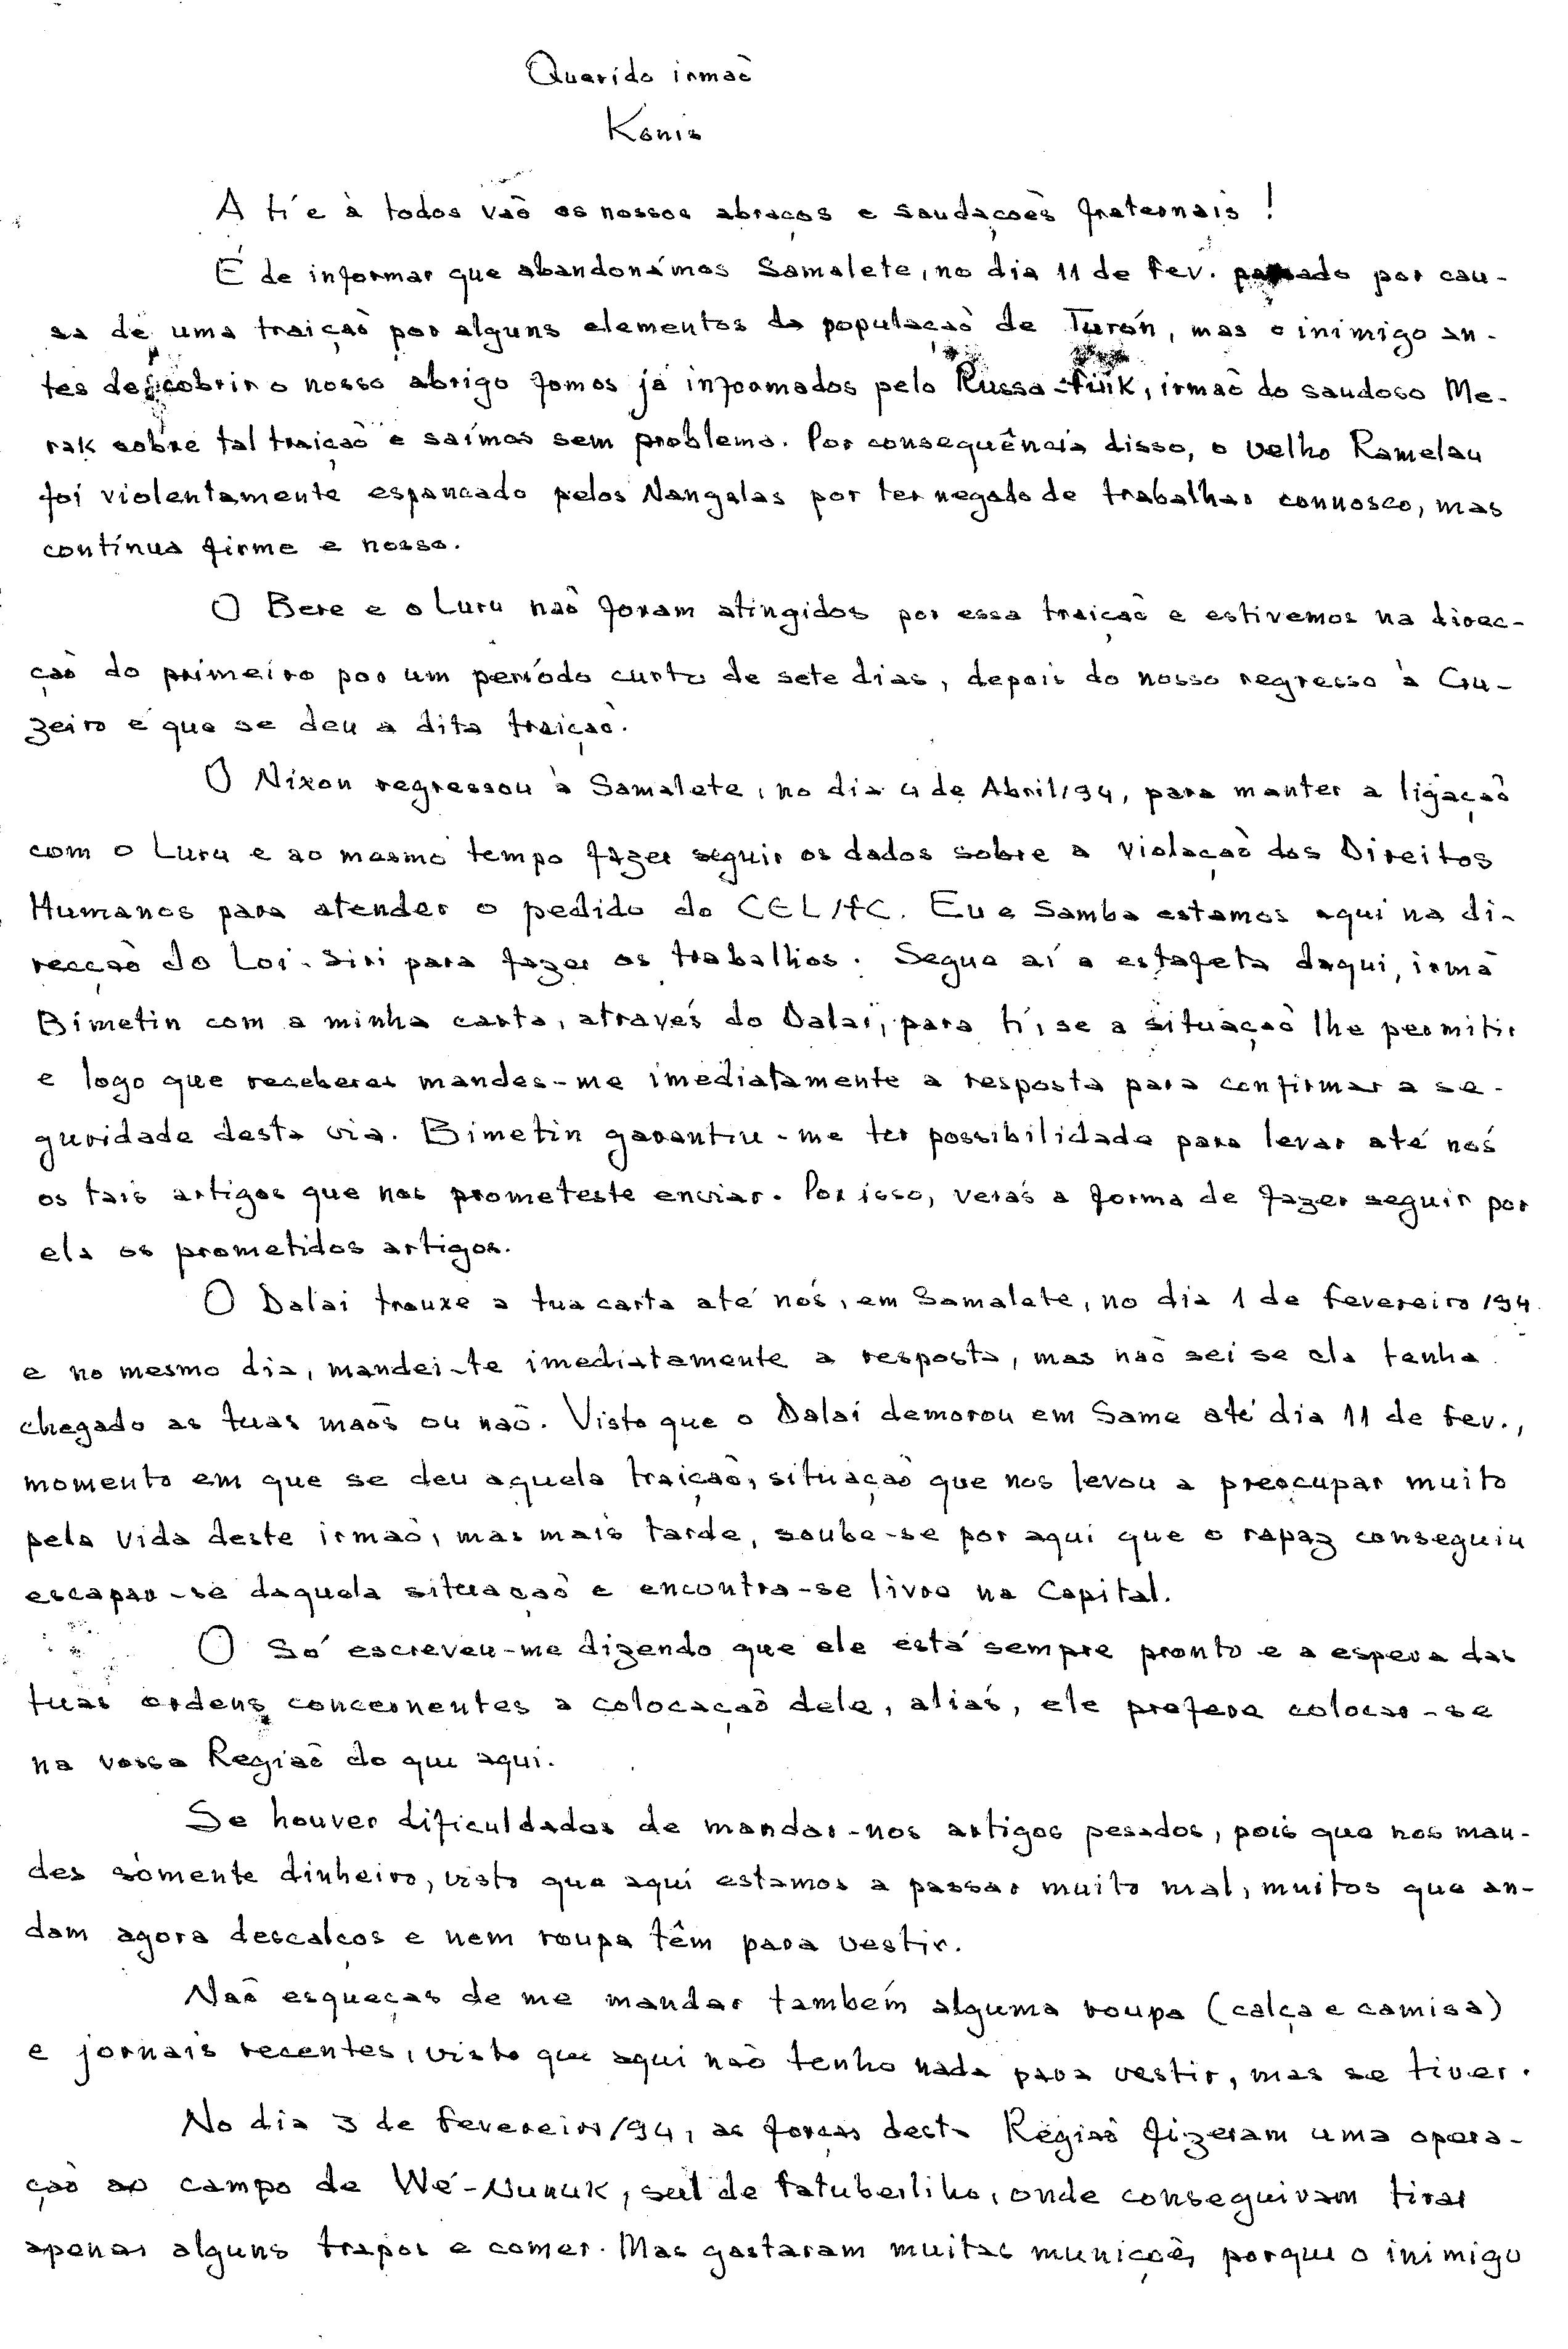 Querido irmaõ
Konis
A ti e à todos vaõ os nossos abraços e saudaçoẽs fraternais !
É de informar que abandonámos Samalete, no dia 11 de Fev. passado por cau-
sa de uma traiçaõ por alguns elementos da populaçaõ de Turón, mas o inimigo an-
tes descobrir o nosso abrigo fomos já informados pelo Russa-Fuik, irmaõ do saudoso Me-
rak sobre tal traiçaõ e saímos sem problema. Por consequência disso, o velho Ramelau
foi violentamente espancado pelos Nangalas por ter negado de trabalhar connosco, mas
contínua firme e nosso.
O Bere e o Luru naõ foram atingidos por essa traiçaõ e estivemos na direc-
çaõ do primeiro por um período curto de sete dias, depois do nosso regresso à Cru-
zeiro é que se deu a dita traiçaõ.
O Nixon regressou à Samalete, no dia 4 de Abril/94, para manter a ligaçaõ
com o Luru e ao mesmo tempo fazer seguir os dados sobre a violaçaõ dos Direitos
Humanos para atender o pedido do CEL/FC. Eu e Samba estamos aqui na di-
recçaõ do Loi-Siri para fazer os trabalhos. Segue aí a estafeta daqui, irmã
Bimetin com a minha carta, através do Dalai, para ti, se a situaçaõ lhe permitir
e logo que receberes mandes-me imediatamente a resposta para confirmar a se-
guridade desta via. Bimetin garantiu-me ter possibilidade para levar até nós
os tais artigos que nos prometeste enviar. Por isso, verás a forma de fazer seguir por
ela os prometidos artigos.
O Dalai trouxe a tua carta até nós, em Samalete, no dia 1 de Fevereiro/94
e no mesmo dia, mandei-te imediatamente a resposta, mas naõ sei se ela tenha
chegado as tuas maõs ou naõ. Visto que o Dalai demorou em Same até dia 11 de Fev.,
momento em que se deu aquela traiçaõ, situaçaõ que nos levou a preocupar muito
pela vida deste irmaõ, mas mais tarde, soube-se por aqui que o rapaz conseguiu
escapar-se daquela situaçaõ e encontra-se livre na Capital.
O Só escreveu-me dizendo que ele está sempre pronto e a espera das
tuas ordens concernentes a colocaçaõ dele, aliás, ele prefere colocar-se
na vossa Regiaõ do que aqui.
Se houver dificuldades de mandar-nos artigos pesados, pois que nos man-
des sòmente dinheiro, visto que aqui estamos a passar muito mal, muitos que an-
dam agora descalços e nem roupa têm para vestir.
Naõ esqueças de me mandar também alguma roupa (calça e camisa)
e jornais recentes, visto que aqui naõ tenho nada para vestir, mas se tiver.
No dia 3 de Fevereiro/94, as forças desta Regiaõ fizeram uma opera-
çaõ ao campo de Wé-Nunuk, sul de Fatuberliho, onde conseguiram tirar
apenas alguns trapos e comer. Mas gastaram muitas muniçoẽs, porque o inimigo